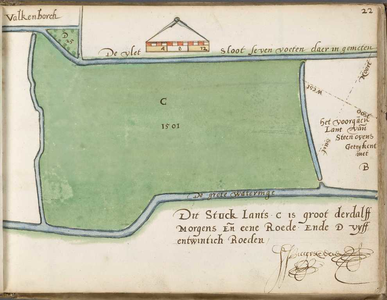 Valkenborch
22
D
De vlet Sloot seven voeten daer in gemeten
C
1501
Noort
West
Oost
Suyt
het voorgaen
Lant van
Steenovens
Geteykent
met
B
De Watering
Dit Stuck Lants C is groot derdalff
Morgens En eene Roede Ende D vyff
entwintich Roeden